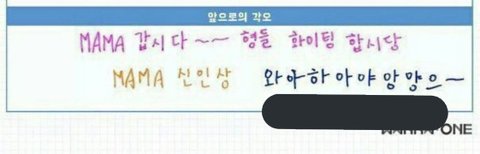 앞으로의 각오
MAMA 갑시다~~ 형들 화이팅 합시당
MAMA 신인상 와아하아야앙먕으~
WANNA ONE